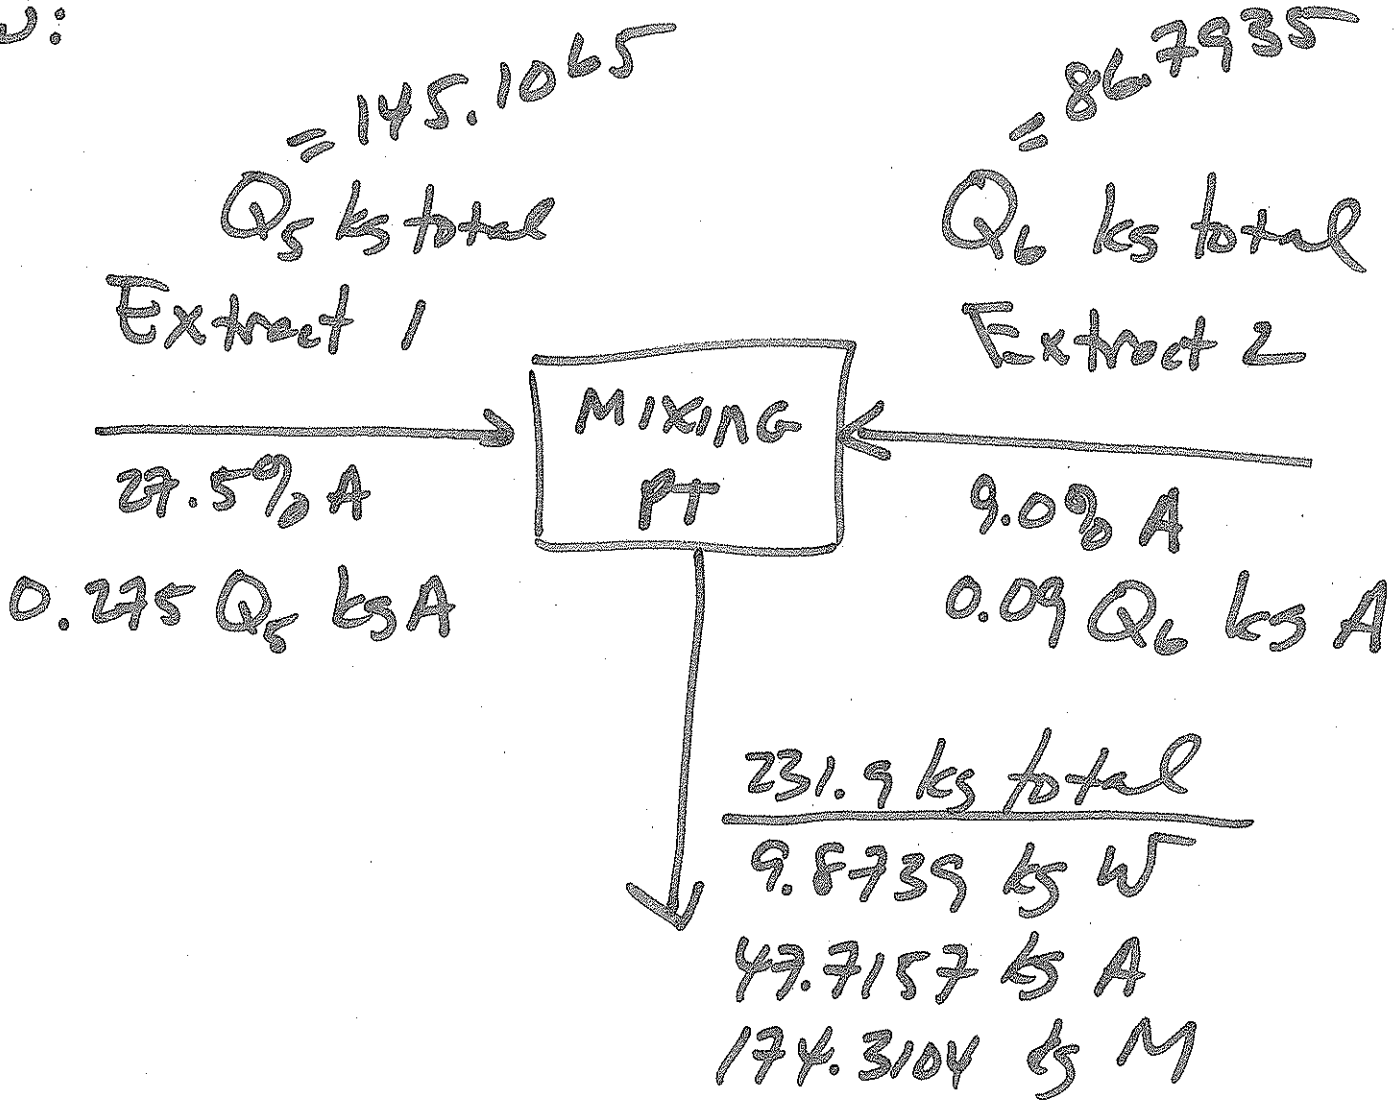 w:
= 145.1065
Q5 kg total
Extract 1
27.5% A
0.275 Q5 kg A
= 86.7935
Q6 kg total
Extract 2
9.0% A
0.09 Q6 kg A
MIXING
PT
231.9 kg total
9.8739 kg W
47.7157 kg A
174.3104 kg M